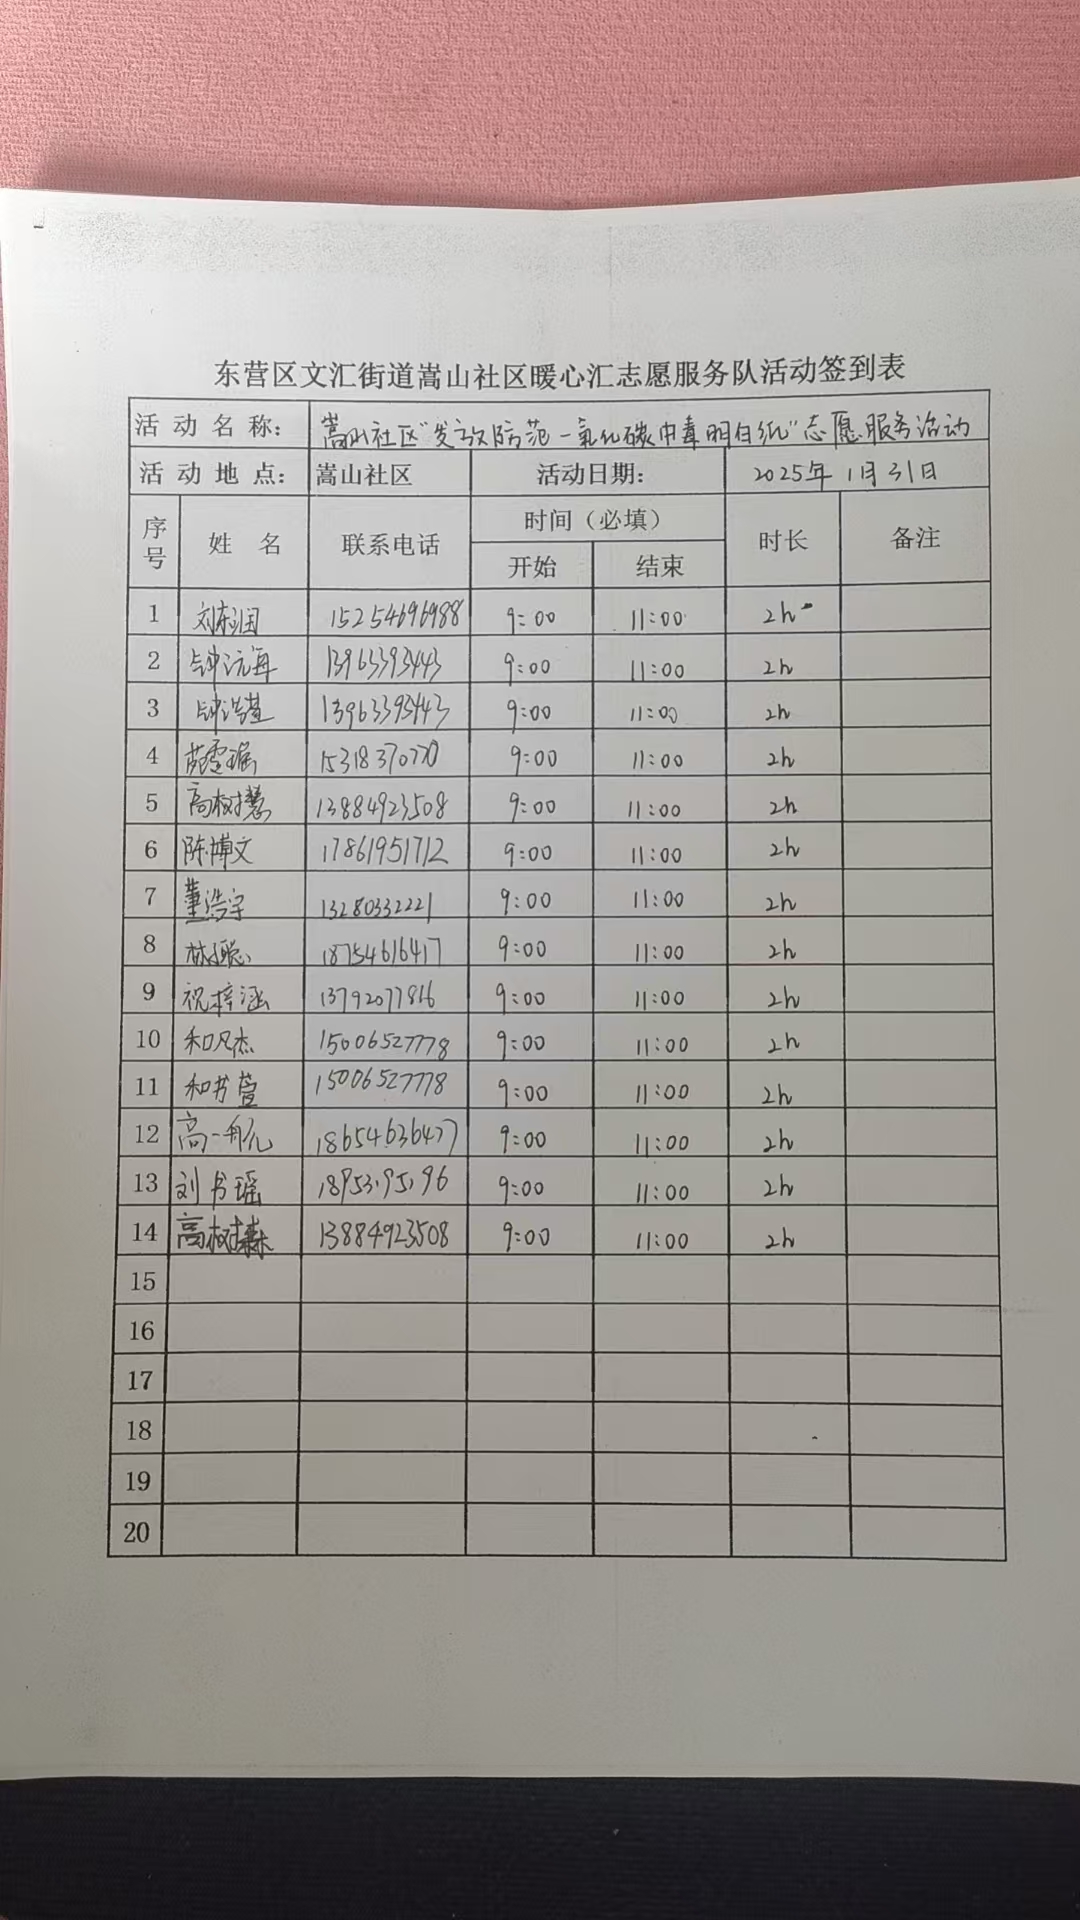 东营区文汇街道嵩山社区暖心汇志愿服务队活动签到表
活动名称： 嵩山社区“发放防范一氧化碳中毒明白纸”志愿服务活动
活动地点： 嵩山社区 活动日期： 2025年1月31日
序号 姓名 联系电话 时间（必填） 时长 备注
开始 结束
1 刘 15254696988 9:00 11:00 2h
2 钟沅海 13963393443 9:00 11:00 2h
3 钟浩基 13963393443 9:00 11:00 2h
4 15318370770 9:00 11:00 2h
5 高树慧 13884923508 9:00 11:00 2h
6 陈博文 17861951712 9:00 11:00 2h
7 董浩宇 13280332221 9:00 11:00 2h
8 林聪 18754616417 9:00 11:00 2h
9 祝梓涵 13792077816 9:00 11:00 2h
10 和凡杰 15006527778 9:00 11:00 2h
11 和书萱 15006527778 9:00 11:00 2h
12 高一航 18654636477 9:00 11:00 2h
13 刘书瑶 18953195196 9:00 11:00 2h
14 高树森 13884923508 9:00 11:00 2h
15
16
17
18
19
20